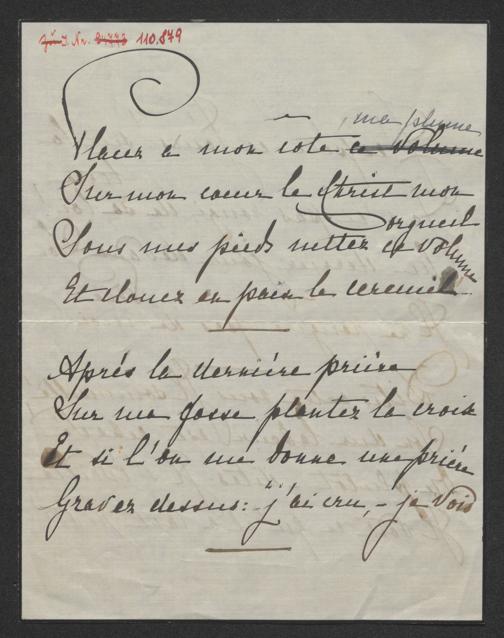 zu J. Nr. 110.879
ma plume
Placez à mon côté ce volume
Sur mon coeur le Christ mon
orgueil
Sous mes pieds mettez ce volume
Et clouez en paix le cerceuil
Aprés la derniére priére
Sur ma fosse plantez la croix
Et si l'on me donne une priére
Gravez dessus: "j'ai cru, - je vois